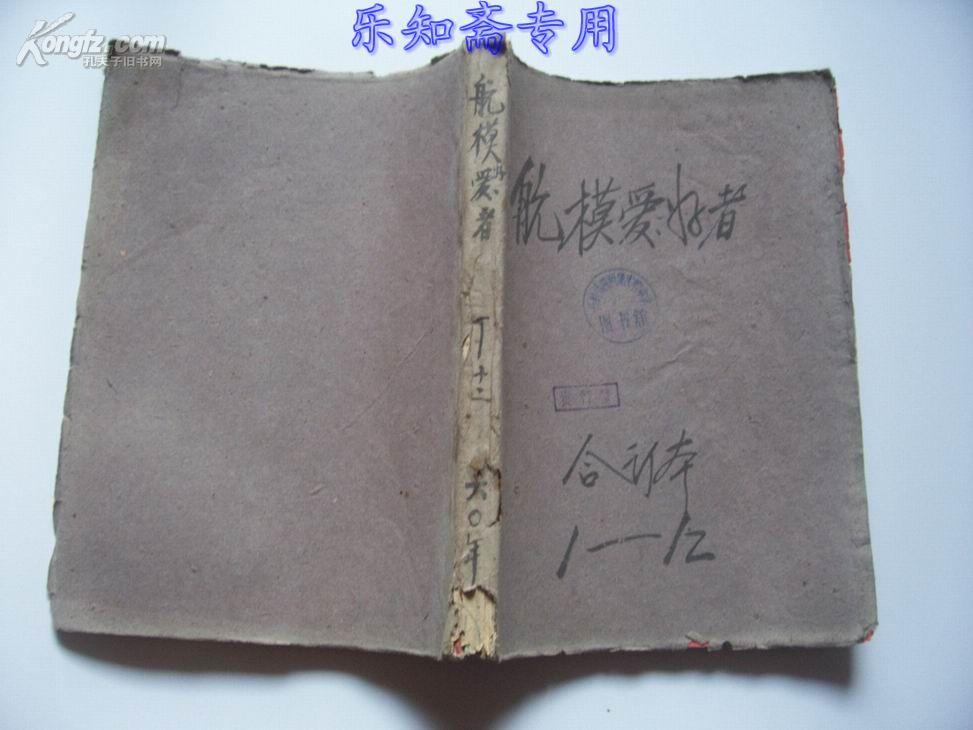 乐知斋专用
Kongfz.com
孔夫子旧书网
航模爱好者
六〇年
航模爱好者
图书馆
合订本
1—12